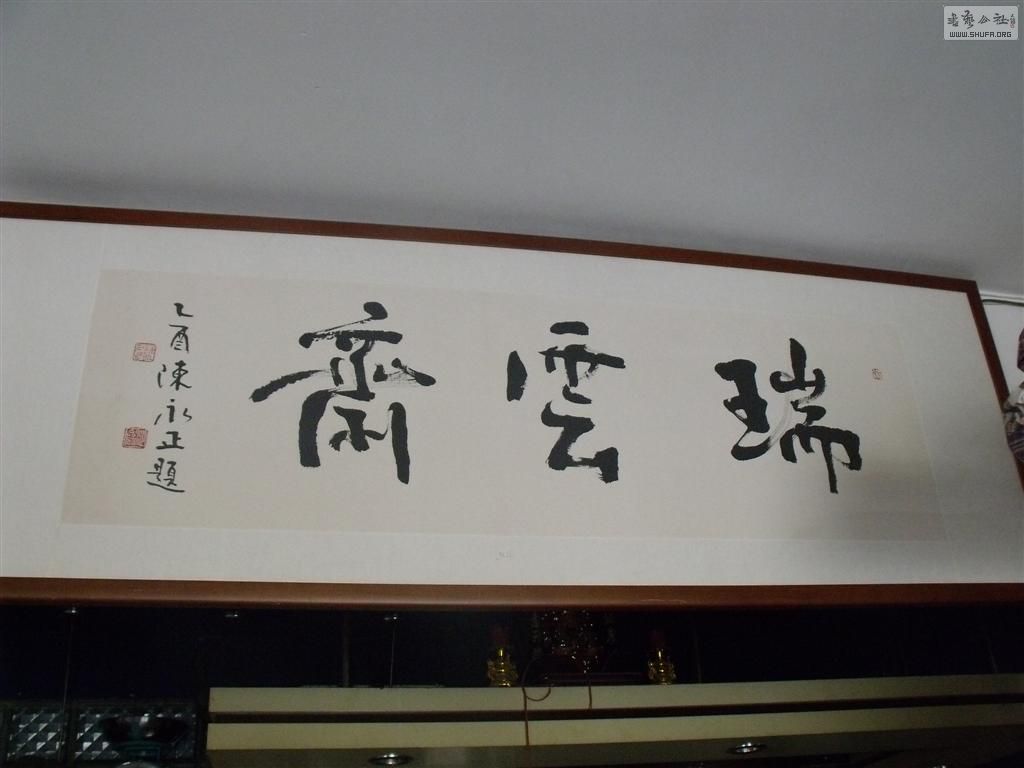 瑞雲齋
乙酉陳永正題
書藝公社
WWW.SHUFA.ORG